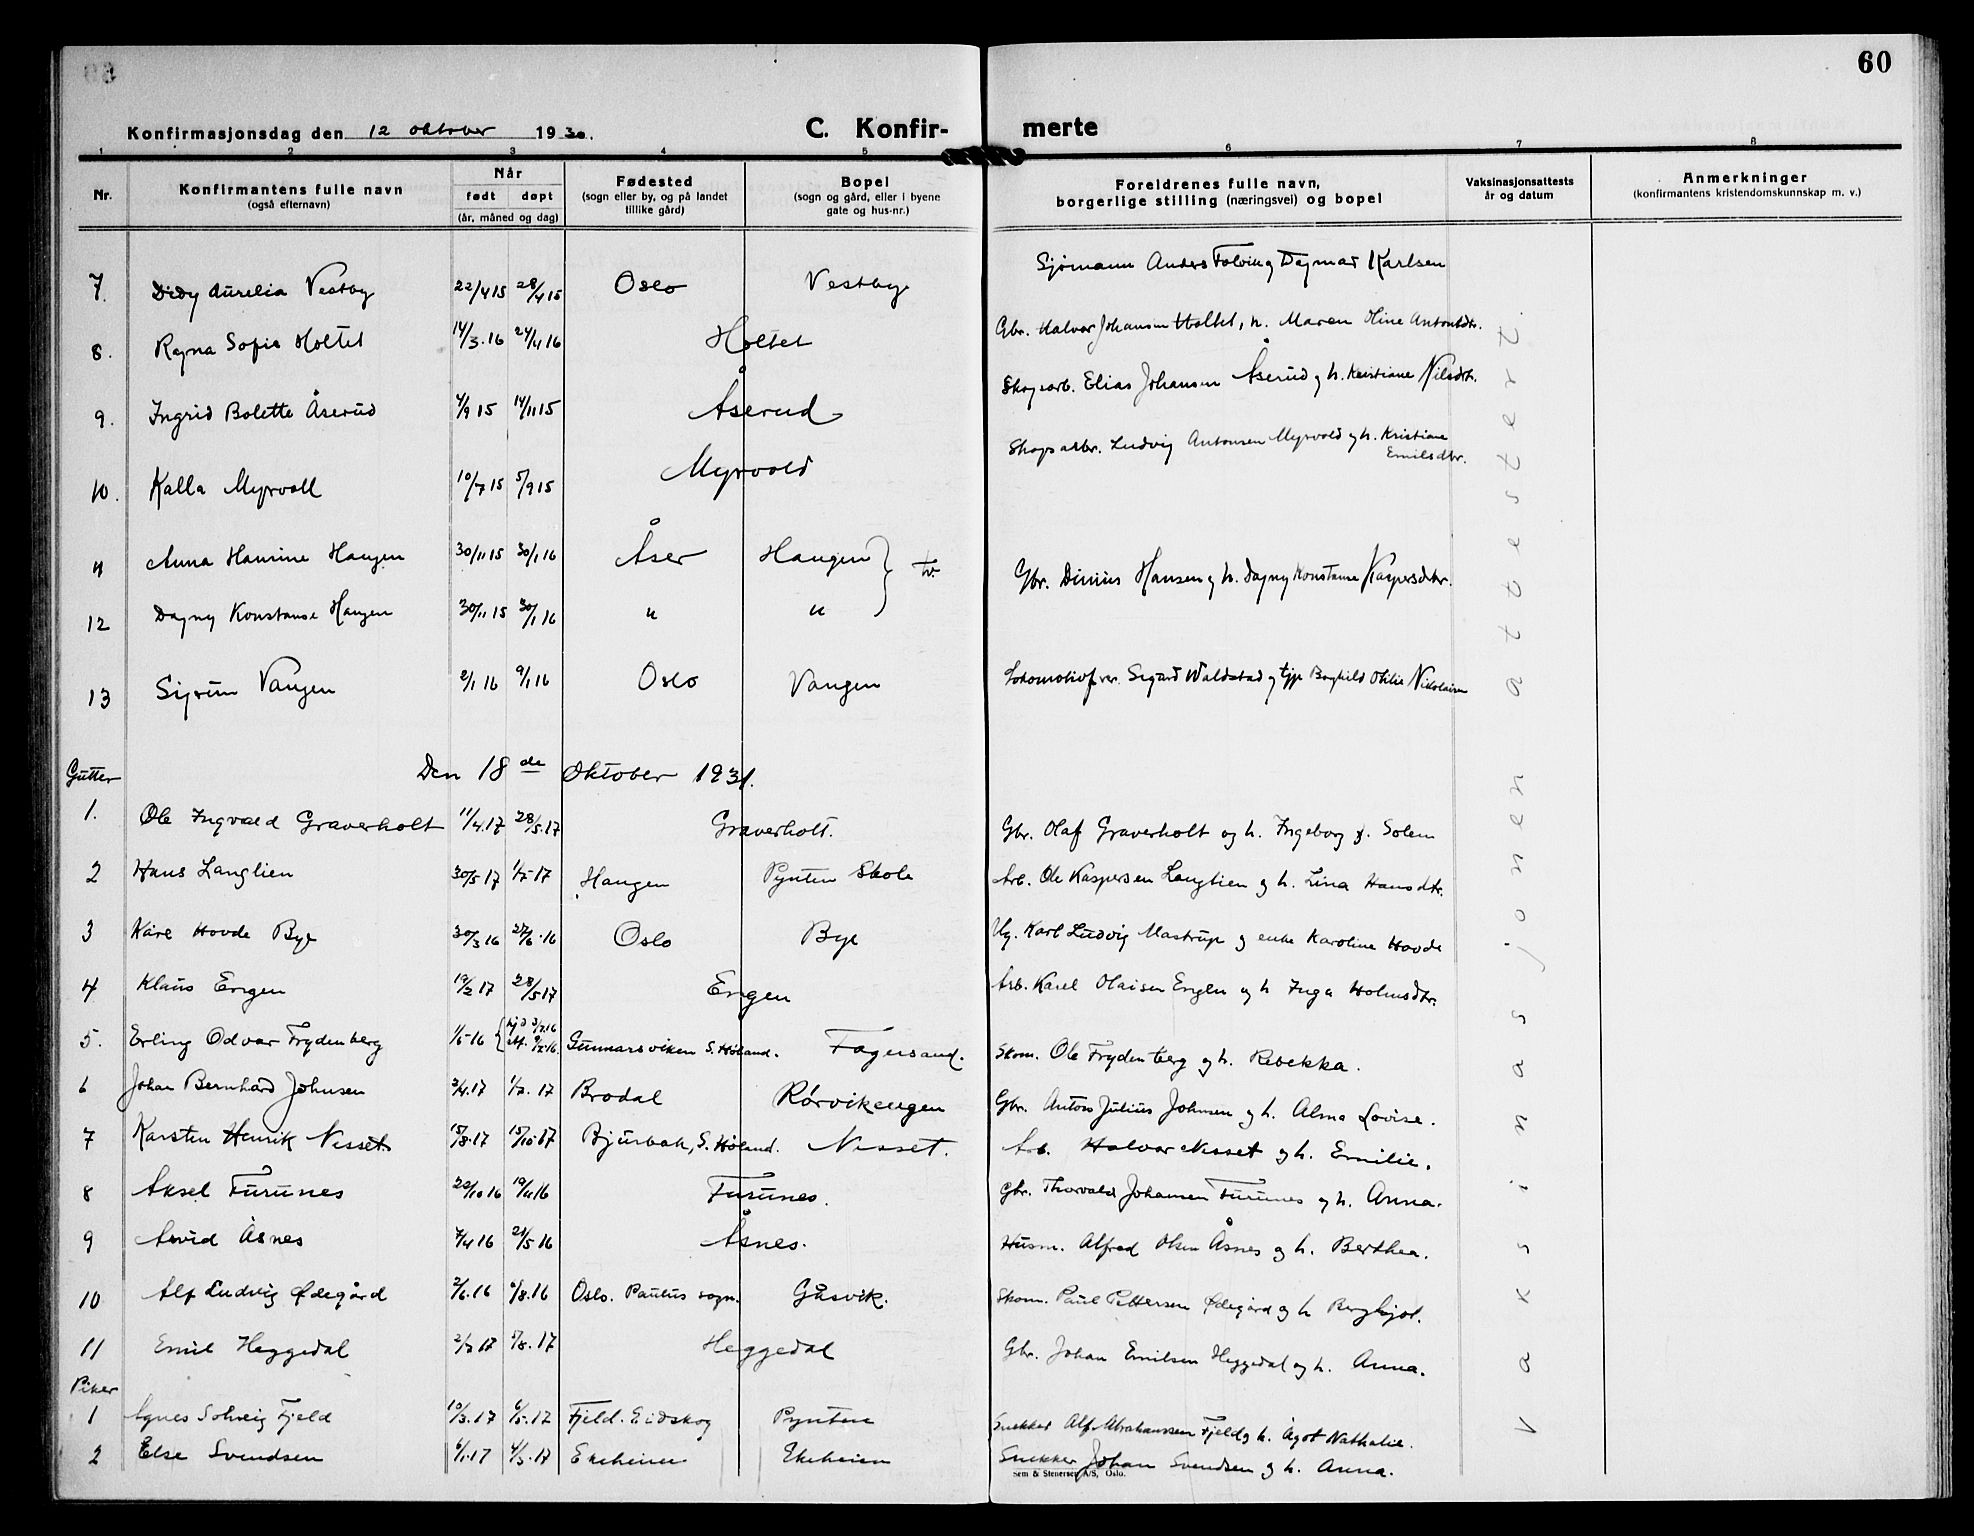 60
Konfirmasjonsdag den 12 oktober 1930.
C. Konfir-merte
1 2 3 4 5 6 7 8
Nr.
Konfirmantens fulle navn
(også efternavn)
Når
født døpt
(år, måned og dag)
Fødested
(sogn eller by, og på landet
tillike gård)
Bopel
(sogn og gård, eller i byene
gate og hus-nr.)
Foreldrenes fulle navn,
borgerlige stilling (næringsvei) og bopel
Vaksinasjonsattests
år og datum
Anmerkninger
(konfirmantens kristendomskunnskap m. v.)
7. Didy Aurelia Vestby 22/4 15 28/4 15 Oslo Vestby Sjømann Anders Folving Dagmar Karlsen
8. Ragna Sofie Holtet 14/3.16 24/4 16 Holtet Gbr. Halvor Johansen Holtet, h. Maren Oline Antonsdtr.
9. Ingrid Bolette Åserud 4/9 15 14/11 15 Åserud Skogsarb. Elias Johansen Åserud og h. Kristiane Nilsdtr.
10. Kalla Myrvold 10/7 15 5/9 15 Myrvold Skogsarbr. Ludvig Antonsen Myrvold og h. Kristiane
Emilsdtr.
11 Anna Haurine Haugen 30/11 15 30/1 16 Åser Haugen } tv. Gbr. Dinius Hansen og h. Dagny Konstanse Kaspersdtr.
12 Dagny Konstanse Haugen 30/11 15 30/1 16 " "
13 Sigrun Vangen 2/1 16 9/1 16 Oslo Vangen Lokomotivfyr. Sigurd Waldstad og tjp. Borghild Otilie Nikolaisen
Den 18de Oktober 1931.
Gutter
1. Ole Ingvald Graverholt 11/4.17 28/5.17 Graverholt. Gbr. Olaf Graverholt og h. Ingeborg f. Solem
2 Hans Langlien 30/5 17 1/7-17 Haugen Pynten Skole Arb. Ole Kaspersen Langlien og h. Lina Hansdtr.
3 Kåre Hovde Bye 30/3 16 27/6.16 Oslo Bye Ug. Karl Ludvig Mastrup og enke Karoline Hovde
4 Klaus Engen 19/2 17 28/5 17 Engen Arb. Karel Olaisen Engen og h Inga Holmsdtr.
5. Erling Odvar Frydenberg 1/5-16 { hjd 3/7.16 stf. 9/7.16. Gunnarsviken S. Høland. Fagersand. Skom. Ole Frydenberg og h. Rebekka.
6 Johan Bernhard Johnsen 3/4.17 1/7.17 Brodal Rørvikengen Gbr. Anton Julius Johnsen og h. Alma Lovise.
7 Karsten Henrik Nesset 15/8.17 15/10.17 Bjurbæk, S. Høland. Nesset. Arb. Halvor Nesset og h. Emilie.
8 Aksel Furunes 20/10 16 19/11 16 Furunes. Gbr. Thorvald Johansen Furunes og h. Anna.
9 Arvid Åsnes 7/4 16 21/5 16 Åsnes. Husm. Alfred Olsen Åsnes og h. Berthea.
10 Alf Ludvig Ødegård 2/6.16 6/8.16 Oslo. Paulus sogn. Gåsvik. Skom. Paul Pettersen Ødegård og h Bergljot.
11 Emil Heggedal 2/7 17 5/8.17 Heggedal Gbr. Johan Emilsen Heggedal og h. Anna.
Piker
1 Agnes Solveig Fjeld 10/3.17 6/5.17 Fjeld. Eidskog Pynten Snekker Alf Abrahamsen Fjeld og h. Ågot Nathalie.
2 Else Svendsen 6/1.17 4/3.17 Ekeheien Ekeheien Snekker Johan Svendsen og h. Anna.
Vaksinasjonsattester.
Sem & Stenersen A/S, Oslo.